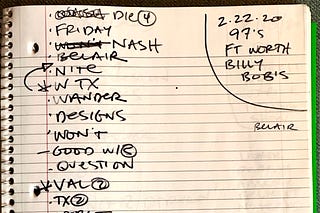 DIE ④
FRIDAY
NASH
BELAIR
NITE
W TX
WANDER
DESIGNS
WON'T
GOOD W/
QUESTION
VAL ②
TX ②
2.22.20
97'S
FT WORTH
BILLY
BOB'S
BELAIR